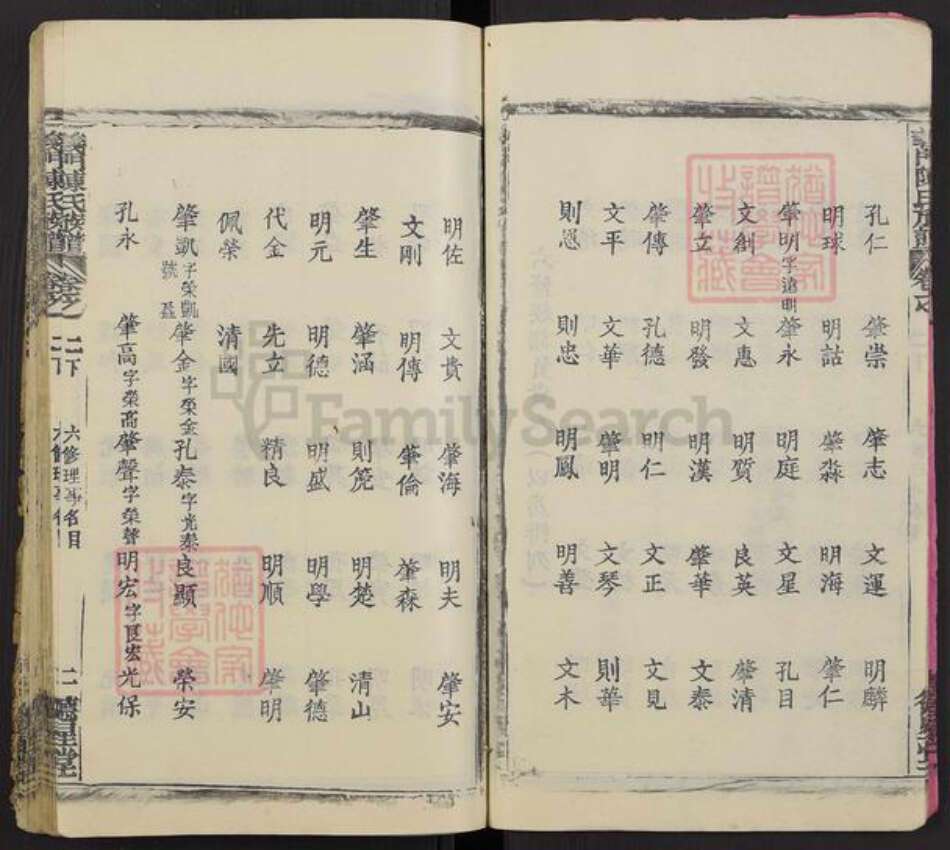 孔仁 肇崇 肇志 文運 明麟
明球 明詁 肇淼 明海 肇仁
肇明字遠明 肇永 明庭 文星 孔目
文創 文惠 明質 良英 肇清
肇立 明發 明漢 肇華 文泰
肇傳 孔德 明仁 文正 文見
文平 文華 肇明 文琴 則華
則恩 則忠 明鳳 明善 文木
明佐 文貴 肇海 明夫 肇安
文剛 明傳 肇倫 肇森
肇生 肇涵 則筦 明楚 清山
明元 明德 明盛 明學 肇德
代金 先立 精良 明順 肇明
佩榮 清國
肇凱字榮凱號 肇金字榮金 孔泰字光泰 良顯 榮安
孔永 肇高字榮高 肇聲字榮聲 明宏字良宏 光保
義門陳氏族譜 卷之 二下 六修理事名目 二
FamilySearch